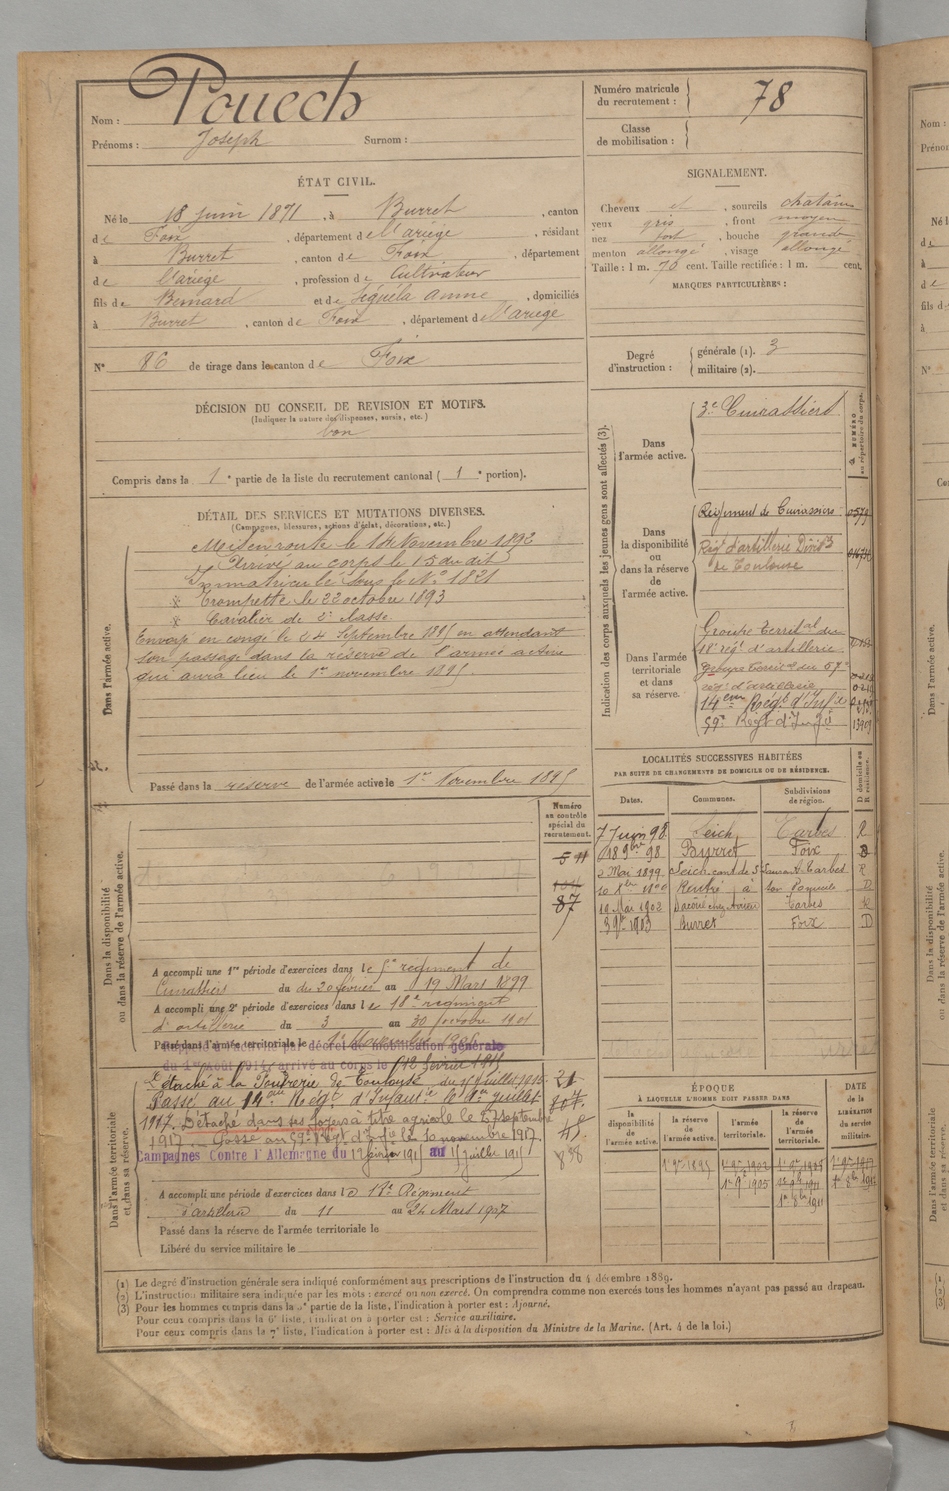 Nom : Pouech
Prénoms : Joseph Surnom :
ÉTAT CIVIL.
Né le 18 juin 1871, à Burret, canton
de Foix, département de l'ariège, résidant
à Burret, canton de Foix, département
de l'ariège, profession de Cultivateur
fils de Bernard et de Séguéla Anne, domiciliés
à Burret, canton de Foix, département de l'ariège
N° 86 de tirage dans le canton de Foix
DÉCISION DU CONSEIL DE REVISION ET MOTIFS.
(Indiquer la nature des dispenses, sursis, etc.)
bon
Compris dans la 1e partie de la liste du recrutement cantonal (1e portion).
DÉTAIL DES SERVICES ET MUTATIONS DIVERSES.
(Campagnes, blessures, actions d'éclat, décorations, etc.)
Dans l'armée active.
Mis en route le 14 Novembre 1892
Arrivé au corps le 15 du dit
Immatriculé sous le N° 1821
Trompette le 22 octobre 1893
Cavalier de 2e classe
Envoyé en congé le 24 Septembre 1895 en attendant
son passage dans la réserve de l'armée active
qui aura lieu le 1er novembre 1895.
Passé dans la reserve de l'armée active le 1er Novembre 1895
Dans la disponibilité
ou dans la réserve de l'armée active.
Numéro
au contrôle
spécial du
recrutement.
87
A accompli une 1re période d'exercices dans le 5e regiment de
Cuirassiers du du 20 février au 19 Mars 1899
A accompli une 2e période d'exercices dans le 18e regiment
d'artillerie du 3 au 30 octobre 1901
Passé dans l'armée territoriale le
Rappelé à l'activité par décret de mobilisation générale
du 1er août 1914, arrivé au corps le 12 février 1915
Dans l'armée territoriale
et dans sa réserve.
Détaché à la Poudrerie de Toulouse du 15 juillet 1915
Passé au 14eme Régt d'Infantie le 1er juillet
1917. Détaché dans ses foyers à titre agricole le 27 septembre
1917. Passé au 59e Régt d'Infie le 10 novembre 1917.
Campagnes Contre l'Allemagne du 12 février 1915 au 15 juillet 1915
A accompli une période d'exercices dans le 18e Régiment
d'artillerie du 11 au 24 Mars 1907
Passé dans la réserve de l'armée territoriale le
Libéré du service militaire le
Numéro matricule
du recrutement : 78
Classe
de mobilisation :
SIGNALEMENT.
Cheveux et, sourcils chatains
yeux gris, front moyen
nez fort, bouche grande
menton allongé, visage allongé
Taille : 1 m. 70 cent. Taille rectifiée : 1 m. cent.
MARQUES PARTICULIÈRES :
Degré
d'instruction :
générale (1). 3
militaire (2).
Indication des corps auxquels les jeunes gens sont affectés (3).
NUMÉRO
au répertoire du corps.
Dans
l'armée active.
3e Cuirassiers
Dans
la disponibilité
ou
dans la réserve
de
l'armée active.
Régiment de Cuirassiers
Régt d'artillerie
de Toulouse
Dans l'armée
territoriale
et dans
sa réserve.
Groupe territal du
18e régt d'artillerie
Groupe territal du 57e
régt d'artillerie
14eme Régt d'Infie
59e Régt d'Infie
LOCALITÉS SUCCESSIVES HABITÉES
PAR SUITE DE CHANGEMENTS DE DOMICILE OU DE RÉSIDENCE.
Dates. Communes. Subdivisions
de région. D domicile ou
R résidence.
7 Juin 98 Seich Tarbes R
18 9bre 98 Burret Foix D
2 Mai 1899 Seich Tarbes R
Rentré à D
19 Mai 1902 Tarbes R
3 9bre 1903 Burret Foix D
ÉPOQUE
À LAQUELLE L'HOMME DOIT PASSER DANS
DATE
de la
LIBÉRATION
du service
militaire.
la
disponibilité
de
l'armée active.
la réserve
de
l'armée active.
l'armée
territoriale.
la réserve
de
l'armée
territoriale.
1er 9bre 1895
(1) Le degré d'instruction générale sera indiqué conformément aux prescriptions de l'instruction du 4 décembre 1889.
(2) L'instruction militaire sera indiquée par les mots : exercé ou non exercé. On comprendra comme non exercés tous les hommes n'ayant pas passé au drapeau.
(3) Pour les hommes compris dans la 5e partie de la liste, l'indication à porter est : Ajourné.
Pour ceux compris dans la 6e liste, l'indication à porter est : Service auxiliaire.
Pour ceux compris dans la 7e liste, l'indication à porter est : Mis à la disposition du Ministre de la Marine. (Art. 4 de la loi.)